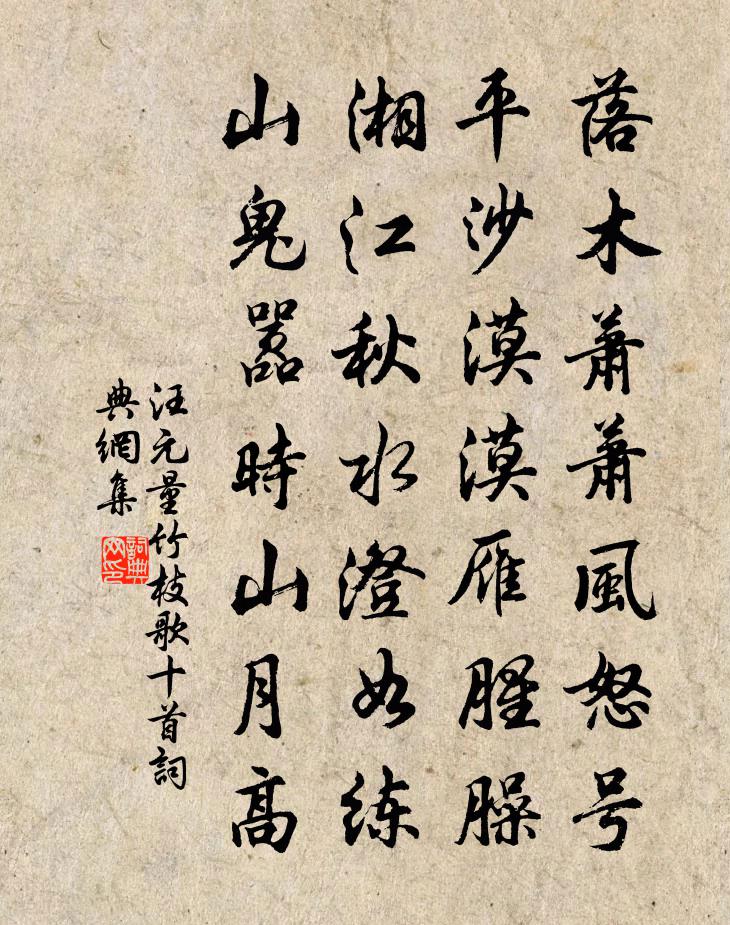 落木蕭蕭風怒号
平沙漠漠雁腥臊
湘江秋水澄如练
山鬼嚣時山月高
汪元量竹枝歌十首詞
典網集
詞典網印